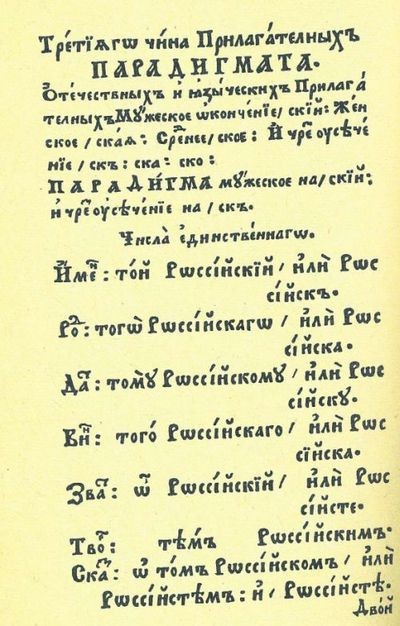 Трéтїѧгѡ чи́на Прилага́телныхъ
ПАРАДИ́ГМАТА.
Ѻте́чествныхъ и҆ ꙗ҆зы́ческихъ Прилага́
телныхъ Мꙋ́жеское ѡ҆конче́нїе / скїй: Жен
ское / скаѧ: Срⷣенее / ское: И҆ чреⷥ ᲂу҆сѣче́
нїе / скъ: ска: ско:
ПАРАДИ́ГМА мꙋ́жеское на / скїй:
и҆ чреⷥ ᲂу҆сѣче́нїе на / скъ.
Числа̀ є҆ди́нственнагѡ.
И҆меⷩ: то́й Рѡссі́йскїй / и҆лѝ Рѡс
сі́йскъ.
Роⷣ: тогѡ̀ Рѡссі́йскагѡ / и҆лѝ Рѡс
сі́йска.
Даⷮ: томꙋ̀ Рѡссі́йскомꙋ / и҆лѝ Рѡс
сі́йскꙋ.
Виⷩ: того́ Рѡссі́йскаго / и҆лѝ Рѡс
сі́йска.
Зваⷮ: ѽ Рѡссі́йскїй / и҆лѝ Рѡс
сі́йсте.
Твоⷬ: тѣ́мъ Рѡссі́йскимъ.
Скаⷥ: ѽ то́мъ Рѡссі́йскомъ / и҆лѝ
Рѡссі́йстѣмъ: и҆ / Рѡссі́йстѣ.
Дво́й